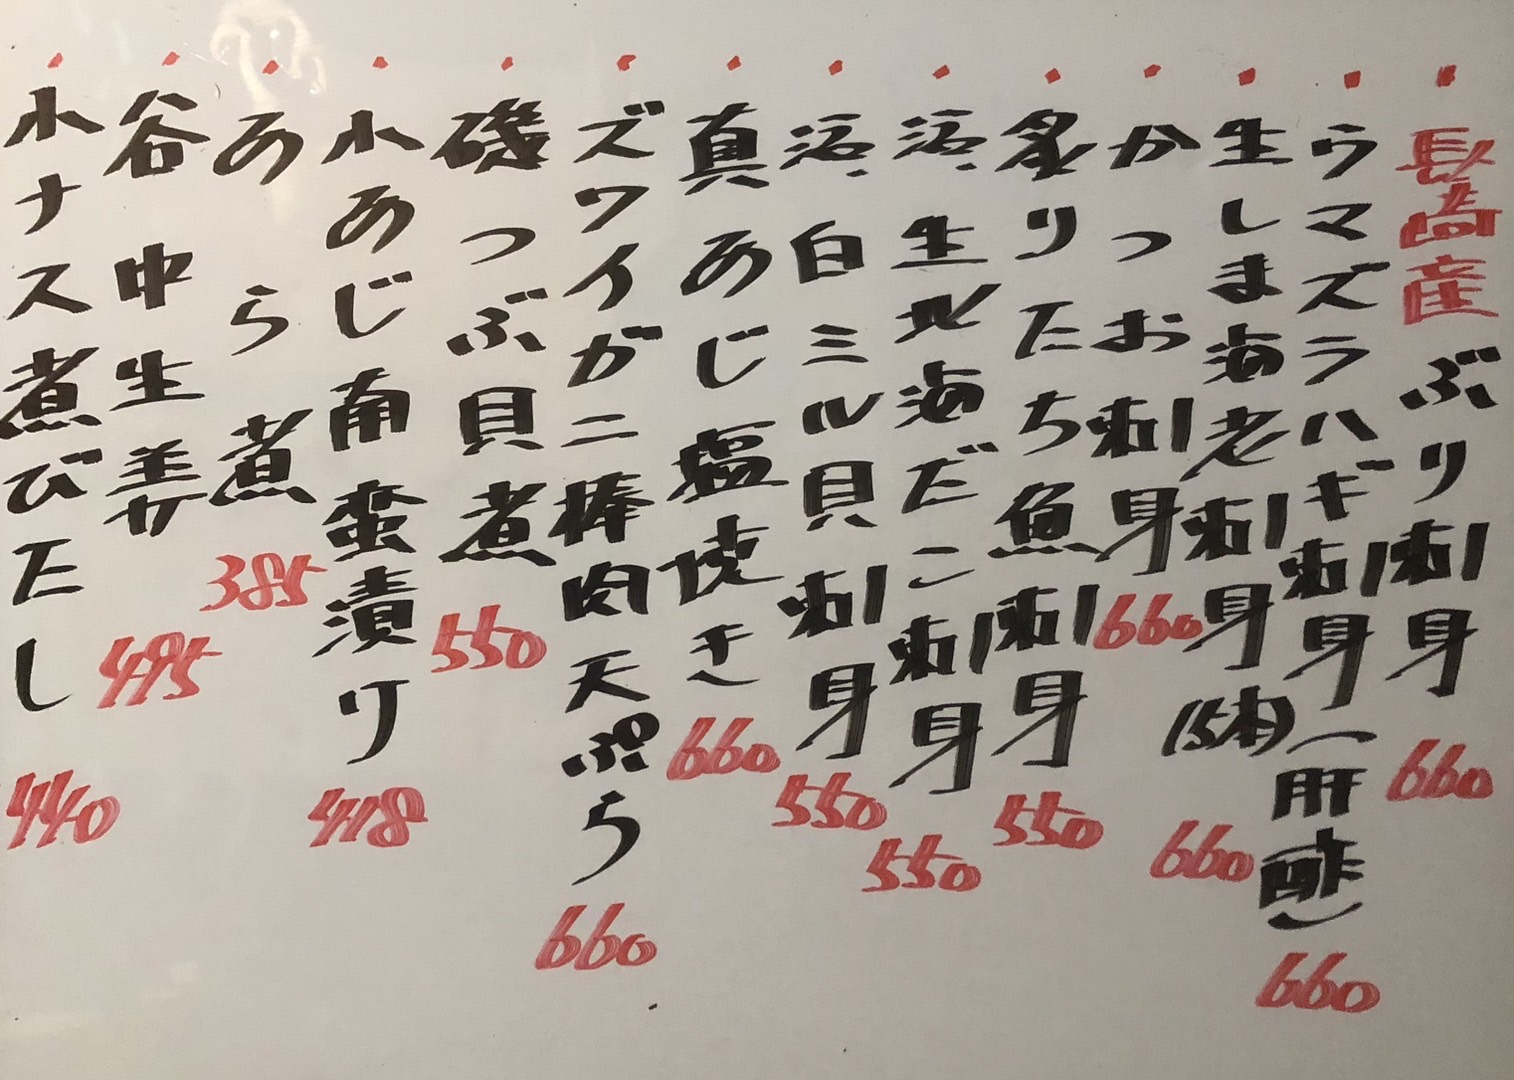 長崎産ぶり刺身 660
ウマズラハギ刺身(肝酢) 660
生しま海老刺身(5本) 660
かつお刺身 660
炙りたち魚刺身 550
活、生北海だこ刺身 550
活、白ミル貝刺身 550
真あじ塩焼き 660
ズワイガニ棒肉天ぷら 660
磯つぶ貝煮 550
小あじ南蛮漬り 418
あら煮 385
谷中生姜 495
小ナス煮びたし 440